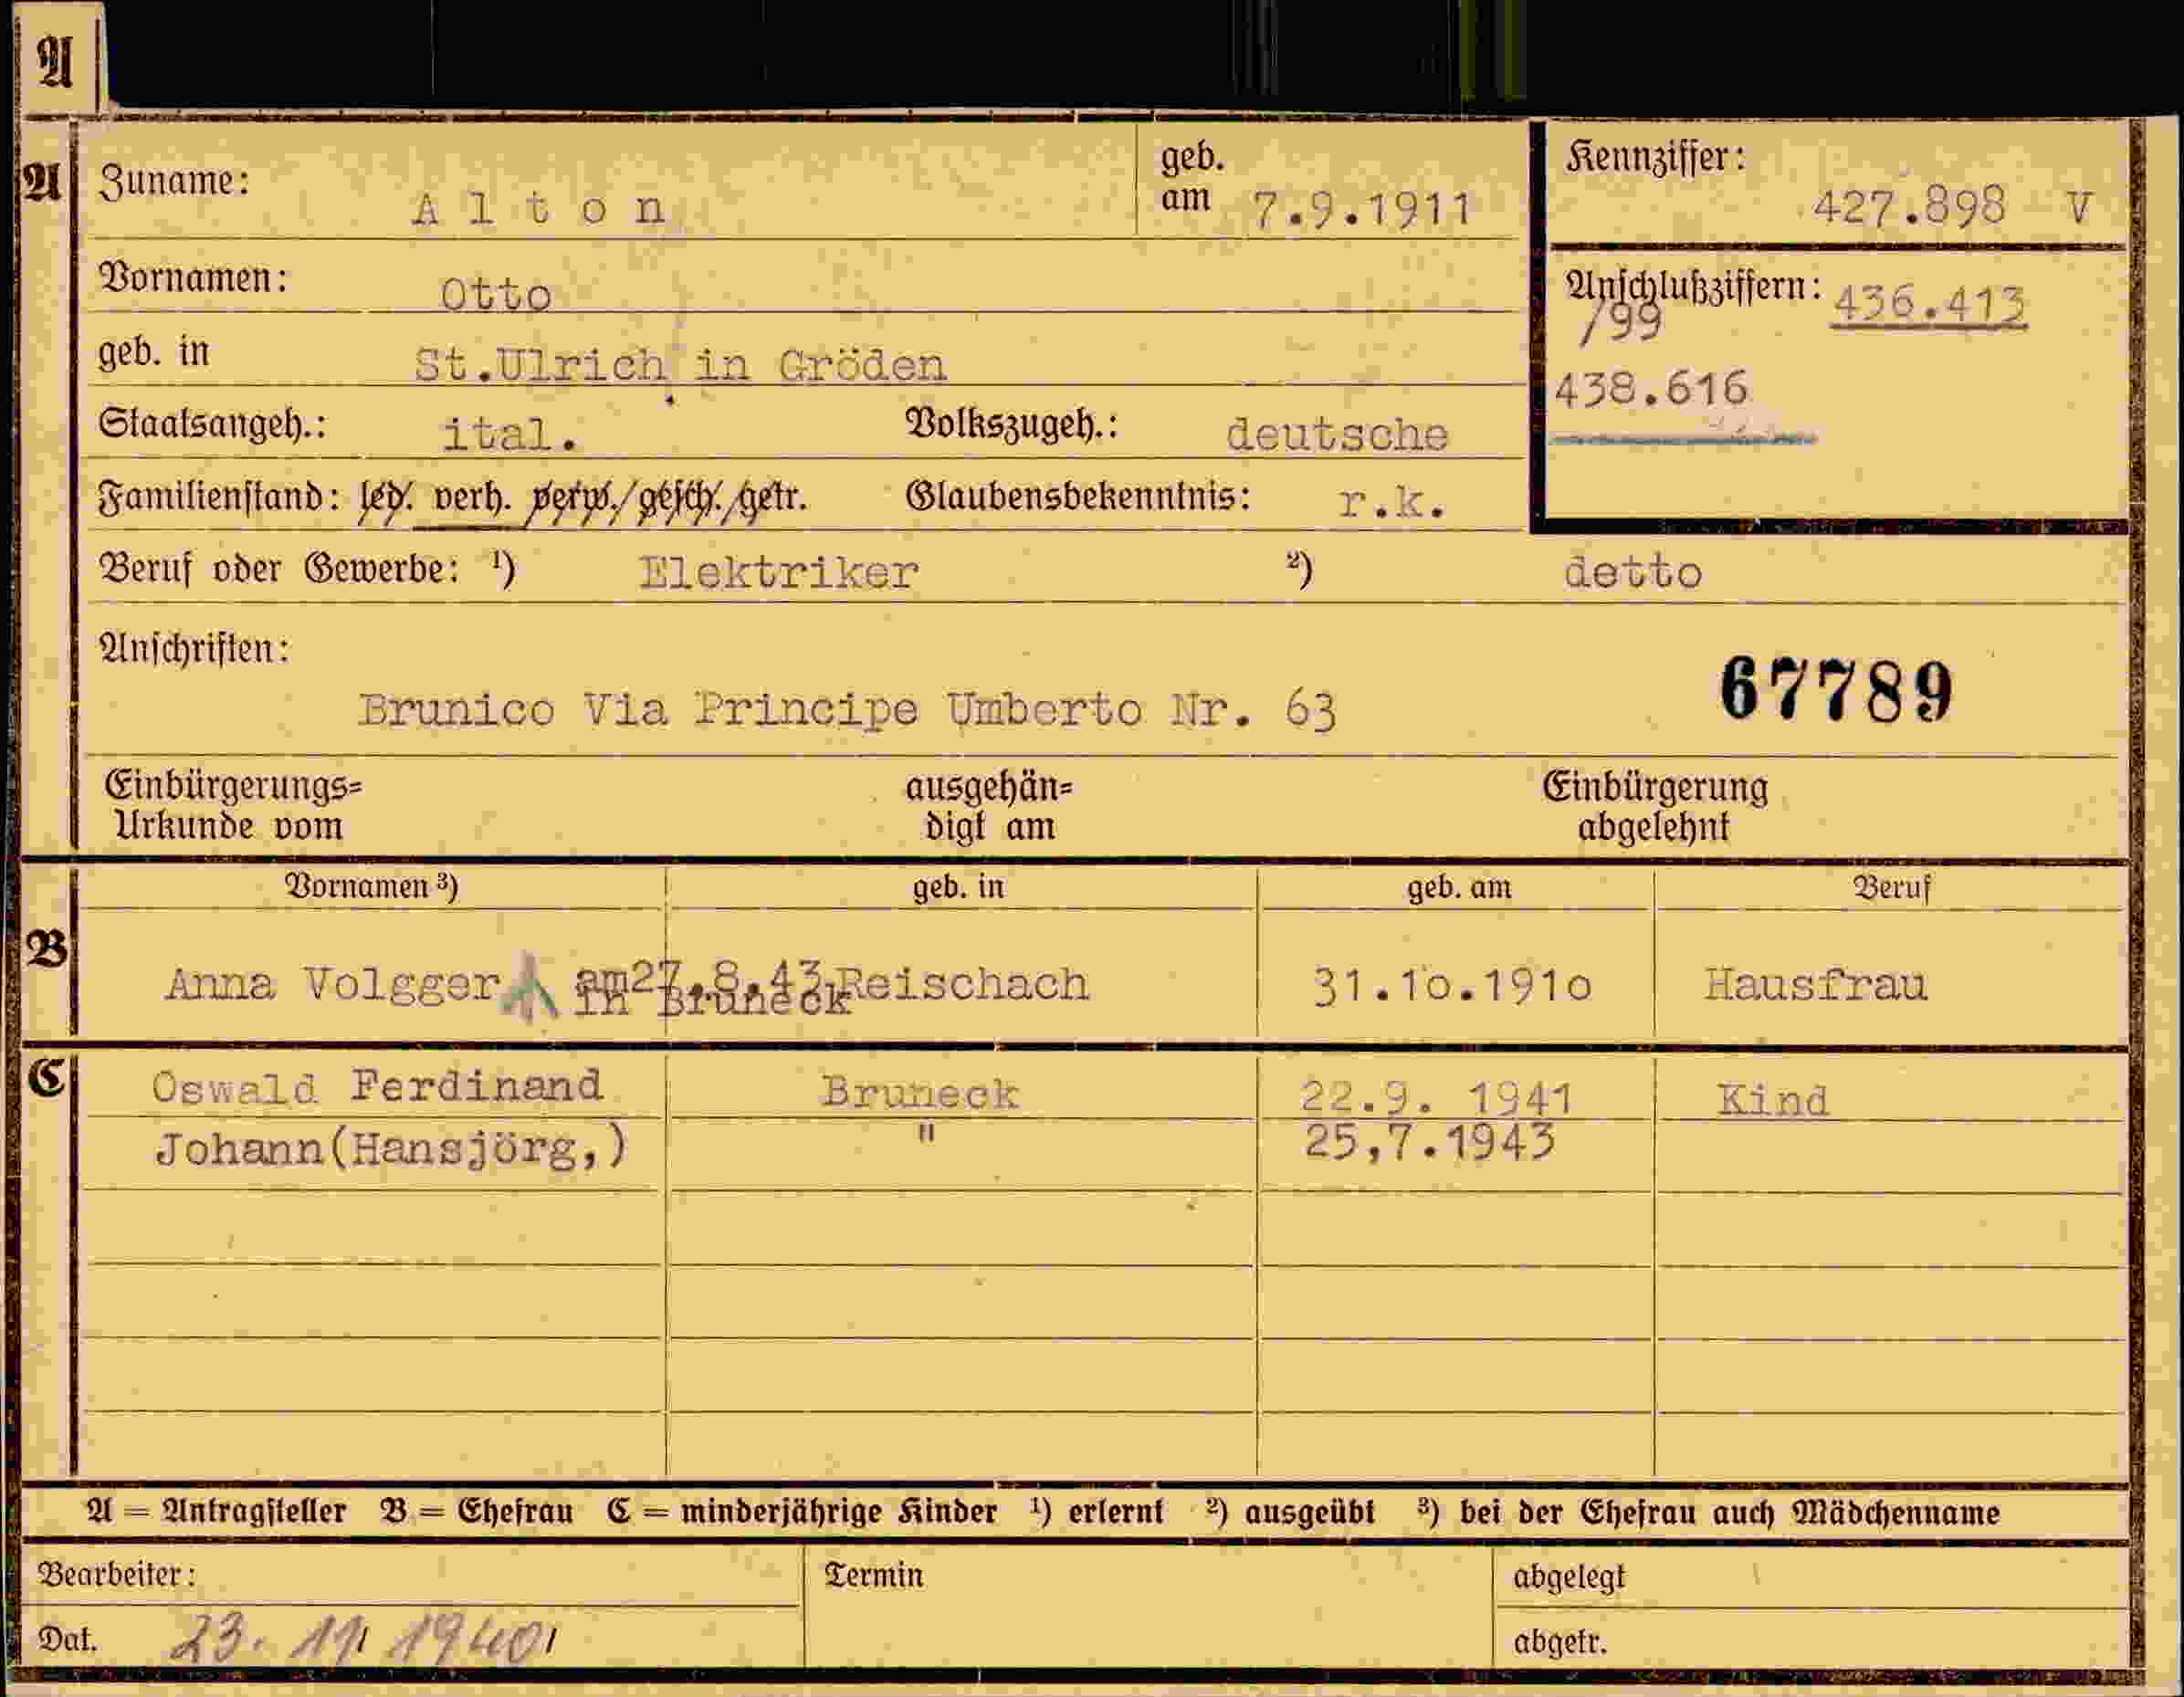 A
A Zuname: Alton geb. am 7.9.1911 Kennziffer: 427.898 V
Vornamen: Otto Anschlußziffern: 436.413
/99
geb. in St.Ulrich in Gröden 438.616
Staatsangeh.: ital. Volkszugeh.: deutsche
Familienstand: led. verh. verw./gesch./getr. Glaubensbekenntnis: r.k.
Beruf oder Gewerbe: ¹) Elektriker ²) detto
Anschriften:
Brunico Via Principe Umberto Nr. 63 67789
Einbürgerungs= ausgehän= Einbürgerung
Urkunde vom digt am abgelehnt
Vornamen ³) geb. in geb. am Beruf
B Anna Volgger am27.8.43 Reischach 31.10.1910 Hausfrau
in Bruneck
C Oswald Ferdinand Bruneck 22.9. 1941 Kind
Johann(Hansjörg,) " 25,7.1943
A = Antragsteller B = Ehefrau C = minderjährige Kinder ¹) erlernt ²) ausgeübt ³) bei der Ehefrau auch Mädchenname
Bearbeiter: Termin abgelegt
Dat. 23. 11 1940 abgetr.